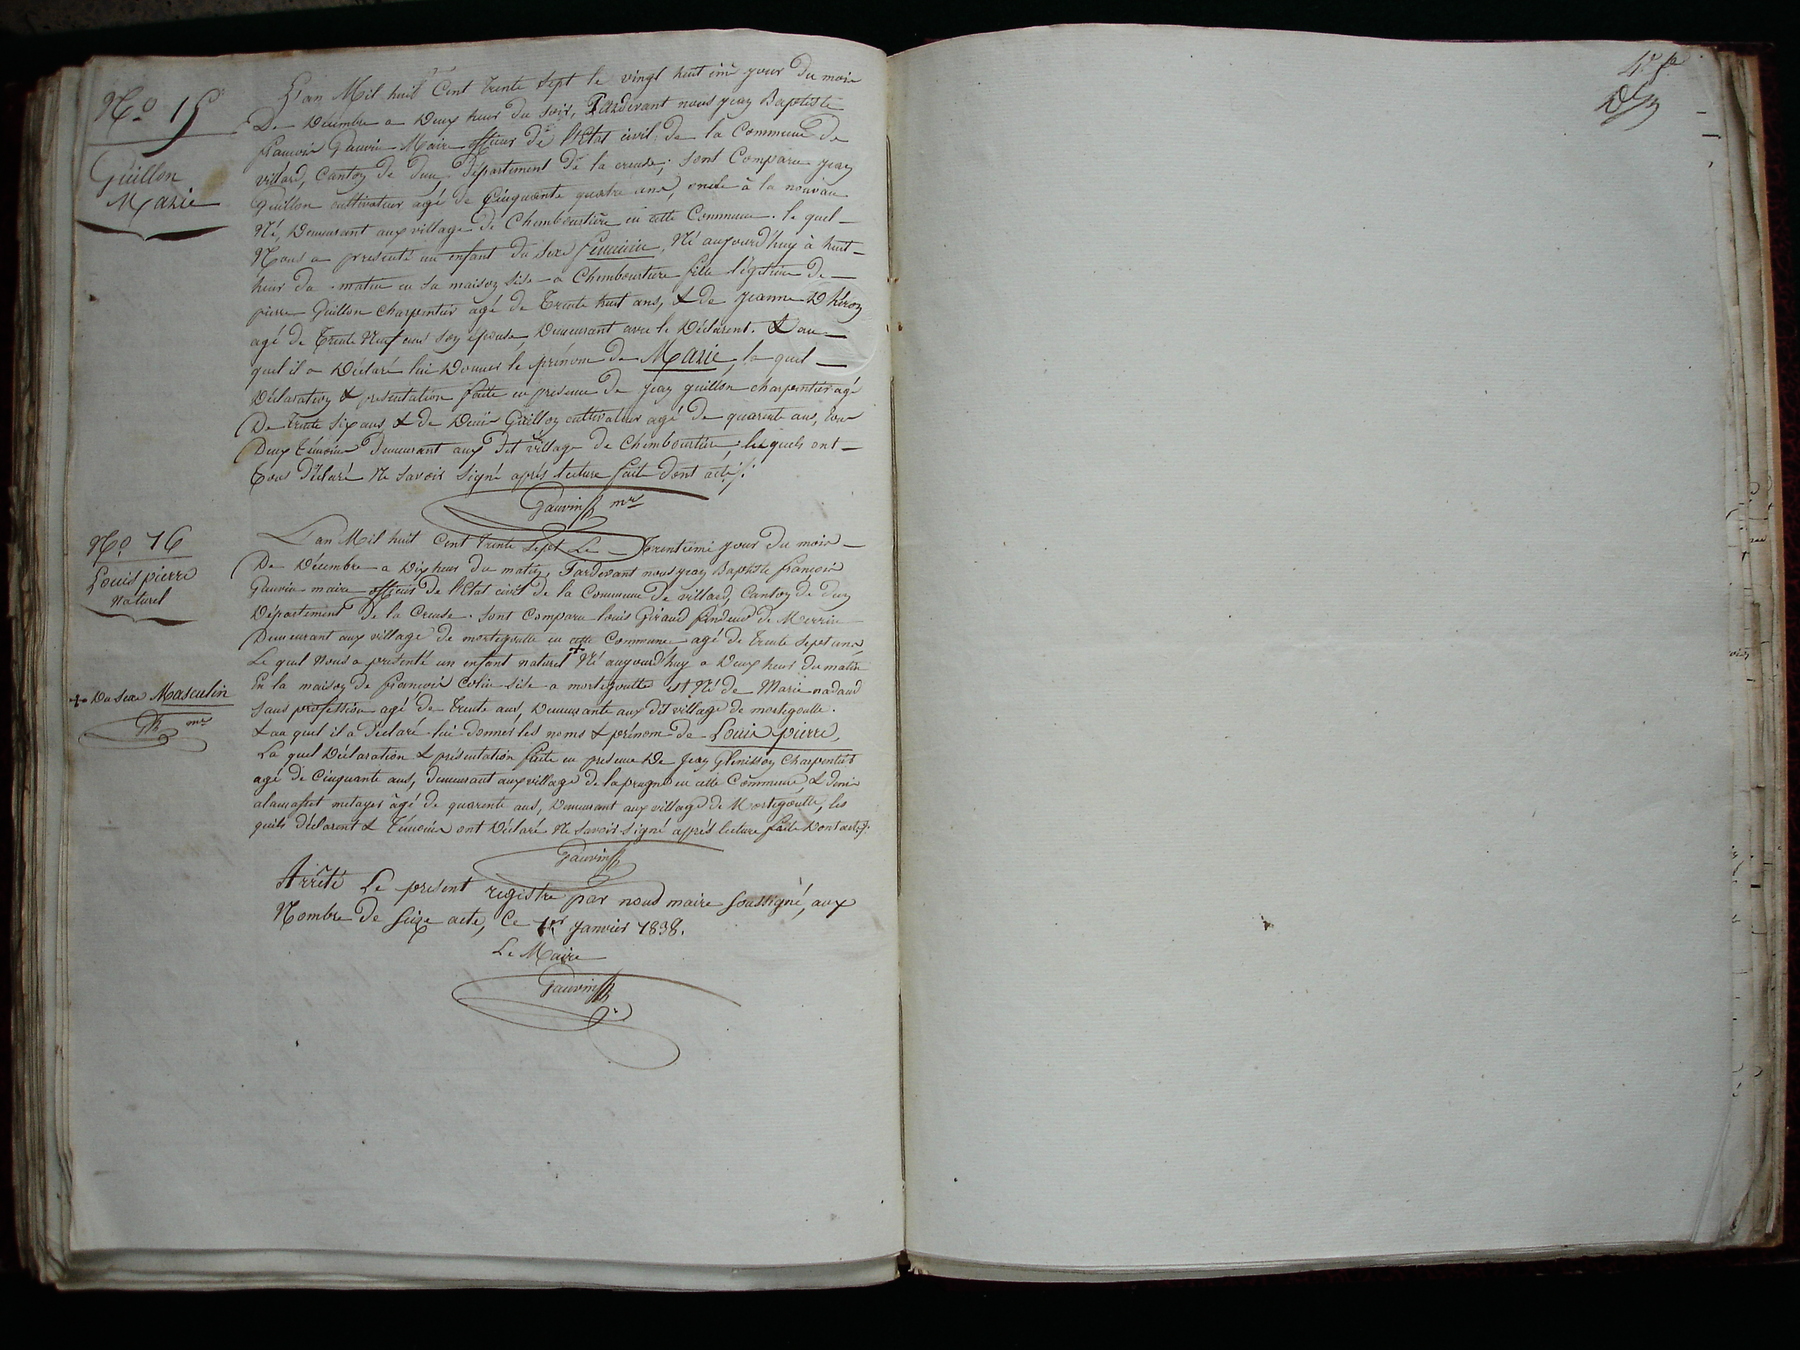 No 15
Guillon
Marie
L'an Mil huit Cent trente Sept le vingt huit ime jour du mois
De Décembre a Deux heur du Soir, Pardevant nous jean Baptiste
françois Gauvin Maire officier de l'Etat civil de la Commune de
villard, Canton de Dun département de la creuse; sont Comparu jean
Guillon cultivateur agé de Cinquante quatre ans, oncle à la nouveau
Né, Demeurant aux village de Chemboursière en cette Commune. le quel
Nous a presenté un enfant du Sexe féminin, Né aujourd'huy à huit
heur du matin en sa maison sise a Chemboursière fille légitime de
pierre Guillon charpentier agé de Trente huit ans, & de jeanne Dhéron
agé de Trente Neuf ans son épouse, Demeurant avec le Déclarent. & au
quel il a Déclaré lui Donner le prénom de Marie, la quel
Déclaration & présentation faite en presence de jean guillon charpentier agé
De trente Six ans & de Denis Guillon cultivateur agé de quarente ans, tou
Deux témoins Demeurant aux Dit village de Chemboursière; lesquels ont
tous Déclaré Ne savoir Signé après lecture faite Dont acte
Gauvin mre
No 16
Louis pierre
naturel
L'an Mil huit Cent trente Sept Le Trentième jour du mois
De Décembre a Dix heur du matin, Pardevant nous jean Baptiste françois
Gauvin maire officier de l'Etat civil de la Commune de villard, Canton de Dun
Département de la Creuse. sont Comparu louis Giraud fendeur de Merrin
Demeurant aux village de mortegoutte en cette Commune agé de trente Sept ans
Le quel Nous a présenté un enfant naturel + Né aujourd'huy a Deux heur du matin
En la maison de françois Colin sise a mortegoutte et Né de Marie nadaud
Sans profession agé de trente ans Demeurante aux dit village de mortegoutte.
+ Du Sexe Masculin
mre
& au quel il a Déclaré lui donner les noms & prénom de Louis pierre,
La quel Déclaration & présentation faite en presence De jean Glenisson Charpentier
agé de Cinquante ans, demeurant aux village de la prugne en cette Commune, & denis
metayer âgé de quarente ans, Demeurant aux village de Mortegoutte, les
quels déclarent & témoins ont Déclaré Ne Savoir Signé après lecture faite Dont acte
Gauvin
Arrêté Le present registre par nous maire Soussigné, aux
Nombre de Seize acte, Ce 1er Janvier 1838.
Le Maire
Gauvin